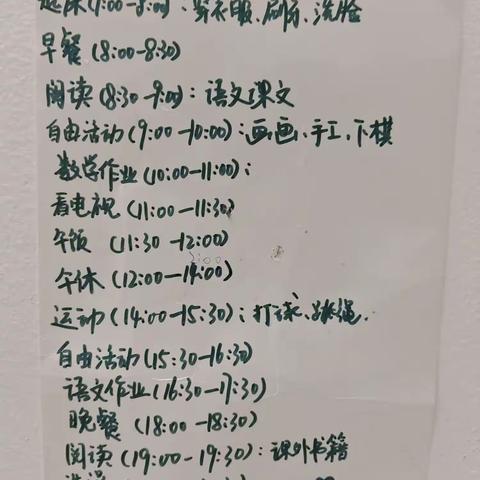 起床(7:00-8:00)、穿衣服、刷牙、洗脸
早餐(8:00-8:30)
阅读(8:30-9:00):语文课文
自由活动(9:00-10:00):画画、手工、下棋
数学作业(10:00-11:00):
看电视(11:00-11:30)
午饭(11:30-12:00)
午休(12:00-14:00)
运动(14:00-15:30):打球、跳绳.
自由活动(15:30-16:30)
语文作业(16:30-17:30)
晚餐(18:00-18:30)
阅读(19:00-19:30):课外书籍